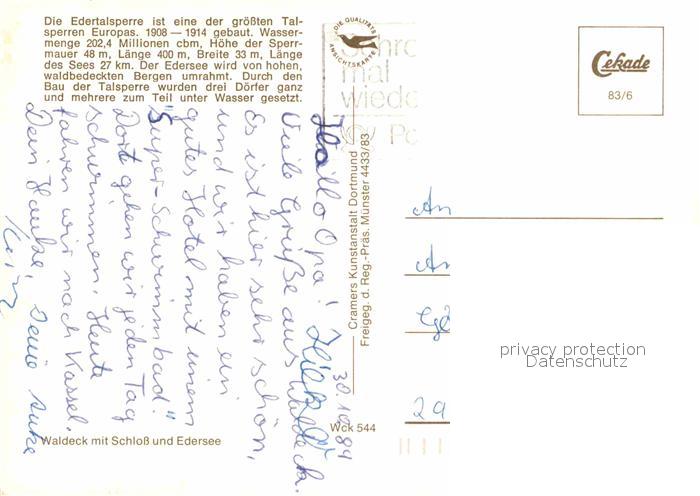 Die Edertalsperre ist eine der größten Tal-
sperren Europas. 1908 — 1914 gebaut. Wasser-
menge 202,4 Millionen cbm, Höhe der Sperr-
mauer 48 m, Länge 400 m, Breite 33 m, Länge
des Sees 27 km. Der Edersee wird von hohen,
waldbedeckten Bergen umrahmt. Durch den
Bau der Talsperre wurden drei Dörfer ganz
und mehrere zum Teil unter Wasser gesetzt.
DIE QUALITÄTS
ANSICHTSKARTE
Schre
mal
wiede
Po
Cekade
83/6
30.10.84
Hallo Opa!
Viele Grüße aus Waldeck.
Es ist hier sehr schön,
und wir haben ein
gutes Hotel mit einem
"Super-Schwimmbad".
Dort gehen wir jeden Tag
schwimmen. Heute
fahren wir nach Kassel.
Dein Hauke, Deine Anke
Cramers Kunstanstalt Dortmund
Freigeg. d. Reg.-Präs. Münster 4433/83
An
An
29
privacy protection
Datenschutz
Wck 544
Waldeck mit Schloß und Edersee